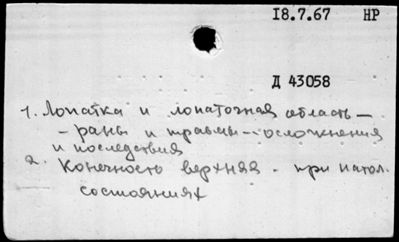 18.7.67 НР
Д 43058
1. Лопатка и лопаточная область –
– раны и травмы – осложнения
и последствия
2. Конечность верхняя - при патол.
состояниях